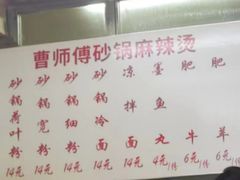 曹师傅砂锅麻辣烫
砂锅荷叶粉 14元
砂锅宽粉 14元
砂锅细粉 14元
砂锅冷面 14元
凉拌面 14元
墨鱼丸 4元/份
肥牛 6元/份
肥羊 6元/份